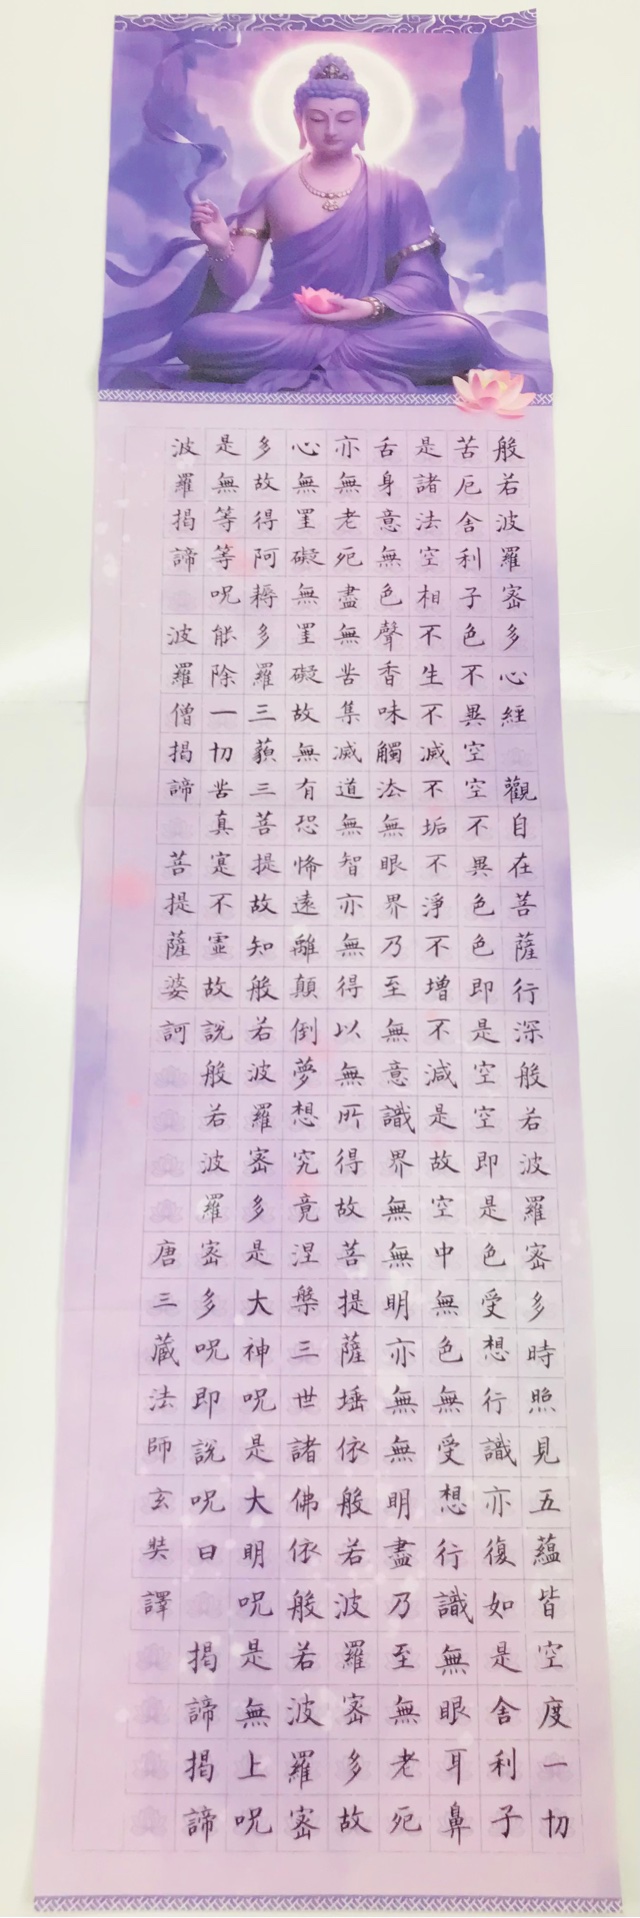 般若波羅密多心經 觀自在菩薩行深般若波羅密多時照見五蘊皆空度一切
苦厄舍利子色不異空空不異色色即是空空即是色受想行識亦復如是舍利子
是諸法空相不生不滅不垢不淨不增不減是故空中無色無受想行識無眼耳鼻
舌身意無色聲香味觸法無眼界乃至無意識界無無明亦無無明盡乃至無老死
亦無老死盡無苦集滅道無智亦無得以無所得故菩提薩埵依般若波羅密多故
心無罣礙無罣礙故無有恐怖遠離顛倒夢想究竟涅槃三世諸佛依般若波羅密
多故得阿耨多羅三藐三菩提故知般若波羅密多是大神呪是大明呪是無上呪
是無等等呪能除一切苦真實不虛故說般若波羅密多呪即說呪曰 揭諦揭諦
波羅揭諦 波羅僧揭諦 菩提薩婆訶 唐三藏法師玄奘譯